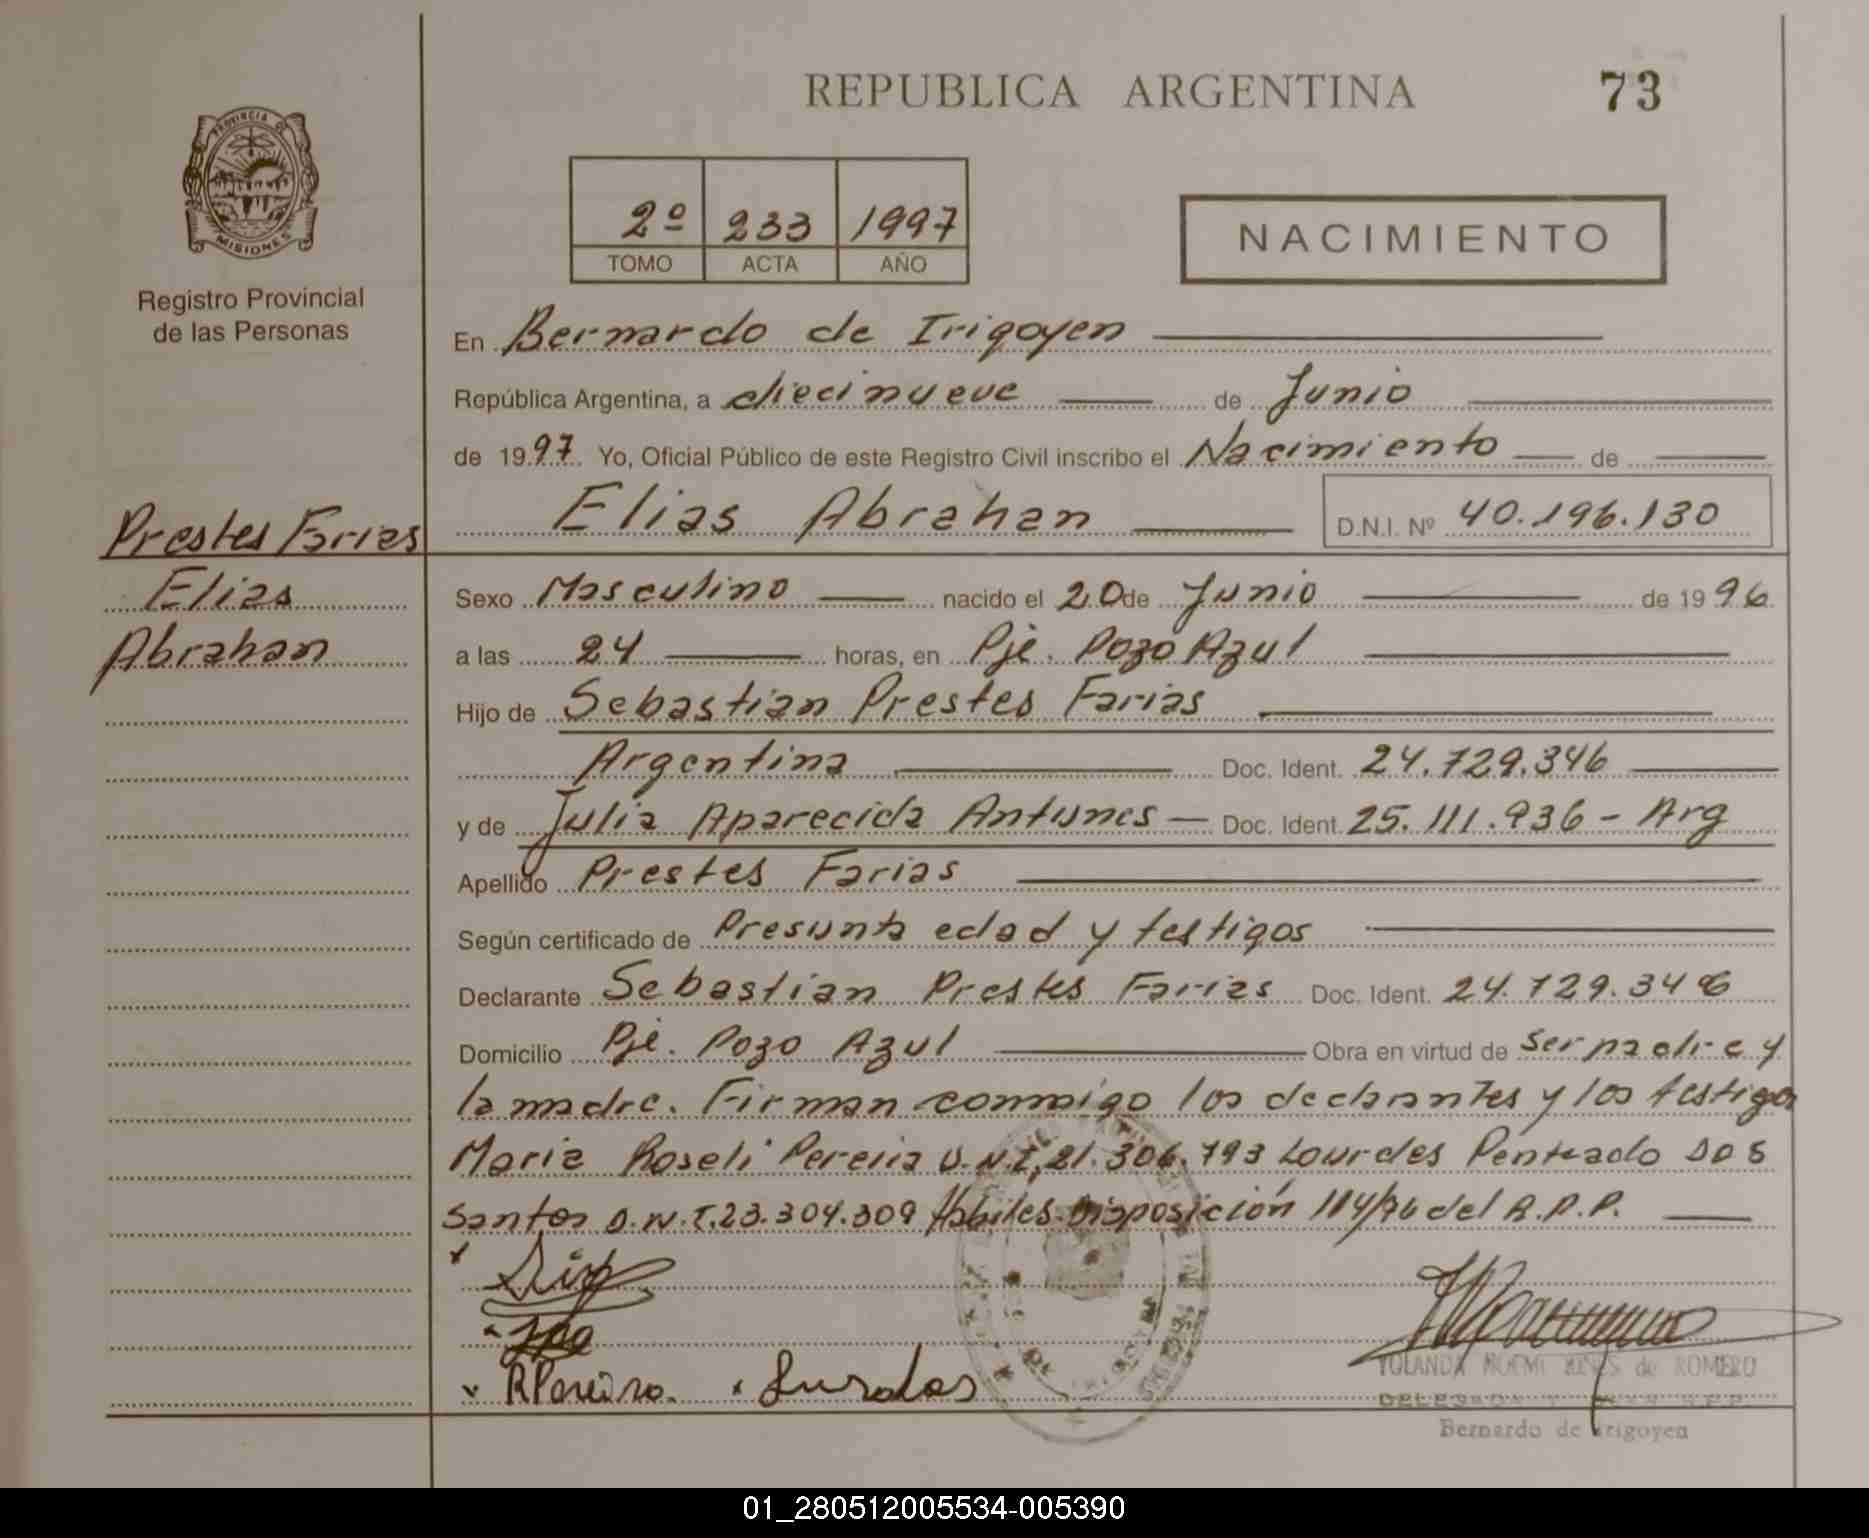 REPUBLICA ARGENTINA 73
PROVINCIA DE
MISIONES
Registro Provincial
de las Personas
2º 233 1997
TOMO ACTA AÑO
NACIMIENTO
En Bernardo de Irigoyen
República Argentina, a diecinueve de Junio
de 1997. Yo, Oficial Público de este Registro Civil inscribo el Nacimiento de
Elias Abrahan D.N.I. Nº 40.196.130
Prestes Farias
Elias
Abrahan
Sexo Masculino nacido el 20 de Junio de 1996
a las 24 horas, en Pje. Pozo Azul
Hijo de Sebastian Prestes Farias
Argentina Doc. Ident. 24.729.346
y de Julia Aparecida Antunes — Doc. Ident. 25.111.936 - Arg
Apellido Prestes Farias
Según certificado de Presunta edad y testigos
Declarante Sebastian Prestes Farias Doc. Ident. 24.729.346
Domicilio Pje. Pozo Azul Obra en virtud de ser padre y
la madre. Firman conmigo los declarantes y los testigos
Maria Roseli Pereira D.N.I. 21.306.793 Lourdes Penteado Dos
Santos D.N.I. 23.304.309 Habiles. Disposición 114/96 del R.P.P.
R Pereira.
YOLANDA NOEMI de ROMERO
Bernardo de Irigoyen
01_280512005534-005390